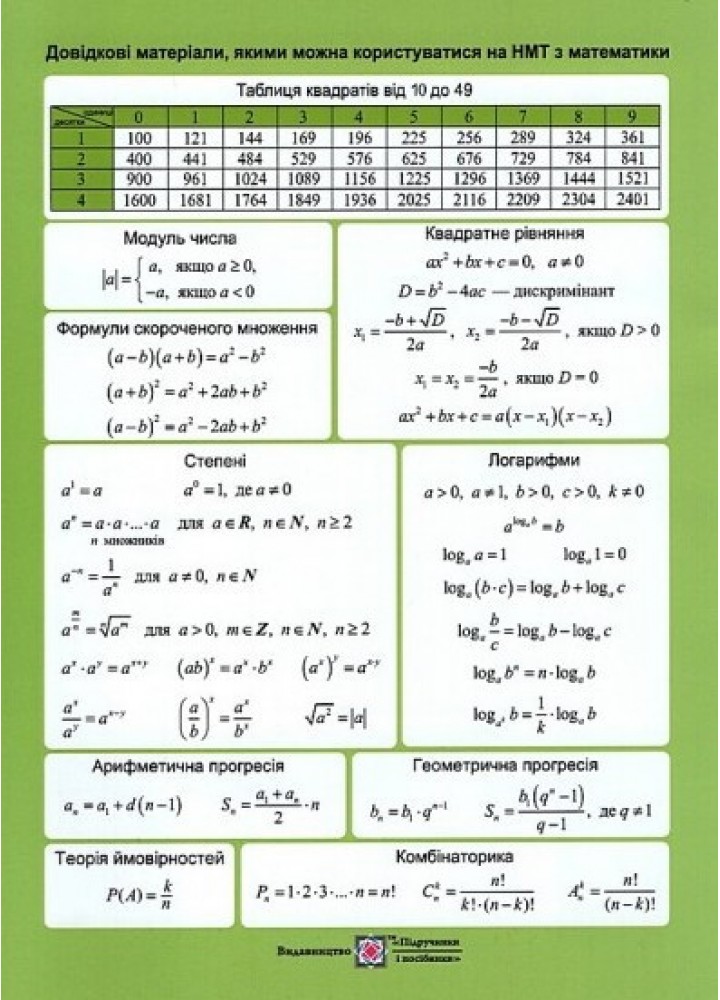 Довідкові матеріали, якими можна користуватися на НМТ з математики
Таблиця квадратів від 10 до 49
десятки одиниці 0 1 2 3 4 5 6 7 8 9
1 100 121 144 169 196 225 256 289 324 361
2 400 441 484 529 576 625 676 729 784 841
3 900 961 1024 1089 1156 1225 1296 1369 1444 1521
4 1600 1681 1764 1849 1936 2025 2116 2209 2304 2401
Модуль числа
|a| = { a, якщо a ≥ 0,
−a, якщо a < 0
Формули скороченого множення
(a−b)(a+b) = a² − b²
(a+b)² = a² + 2ab + b²
(a−b)² = a² − 2ab + b²
Квадратне рівняння
ax² + bx + c = 0, a ≠ 0
D = b² − 4ac — дискримінант
x₁ = (−b + √D)/2a, x₂ = (−b − √D)/2a, якщо D > 0
x₁ = x₂ = −b/2a, якщо D = 0
ax² + bx + c = a(x − x₁)(x − x₂)
Степені
a¹ = a a⁰ = 1, де a ≠ 0
aⁿ = a·a·...·a для a ∈ R, n ∈ N, n ≥ 2
n множників
a⁻ⁿ = 1/aⁿ для a ≠ 0, n ∈ N
a^(m/n) = ⁿ√(aᵐ) для a > 0, m ∈ Z, n ∈ N, n ≥ 2
aˣ · aʸ = aˣ⁺ʸ (ab)ˣ = aˣ · bˣ (aˣ)ʸ = aˣ·ʸ
aˣ/aʸ = aˣ⁻ʸ (a/b)ˣ = aˣ/bˣ √(a²) = |a|
Логарифми
a > 0, a ≠ 1, b > 0, c > 0, k ≠ 0
a^(logₐ b) = b
logₐ a = 1 logₐ 1 = 0
logₐ (b·c) = logₐ b + logₐ c
logₐ b/c = logₐ b − logₐ c
logₐ bⁿ = n · logₐ b
log_(aᵏ) b = 1/k · logₐ b
Арифметична прогресія
aₙ = a₁ + d(n−1) Sₙ = (a₁ + aₙ)/2 · n
Геометрична прогресія
bₙ = b₁ · qⁿ⁻¹ Sₙ = b₁(qⁿ − 1)/(q − 1), де q ≠ 1
Теорія ймовірностей
P(A) = k/n
Комбінаторика
Pₙ = 1·2·3·...·n = n! Cₙᵏ = n!/(k!·(n−k)!) Aₙᵏ = n!/(n−k)!
Видавництво ™«Підручники
і посібники»